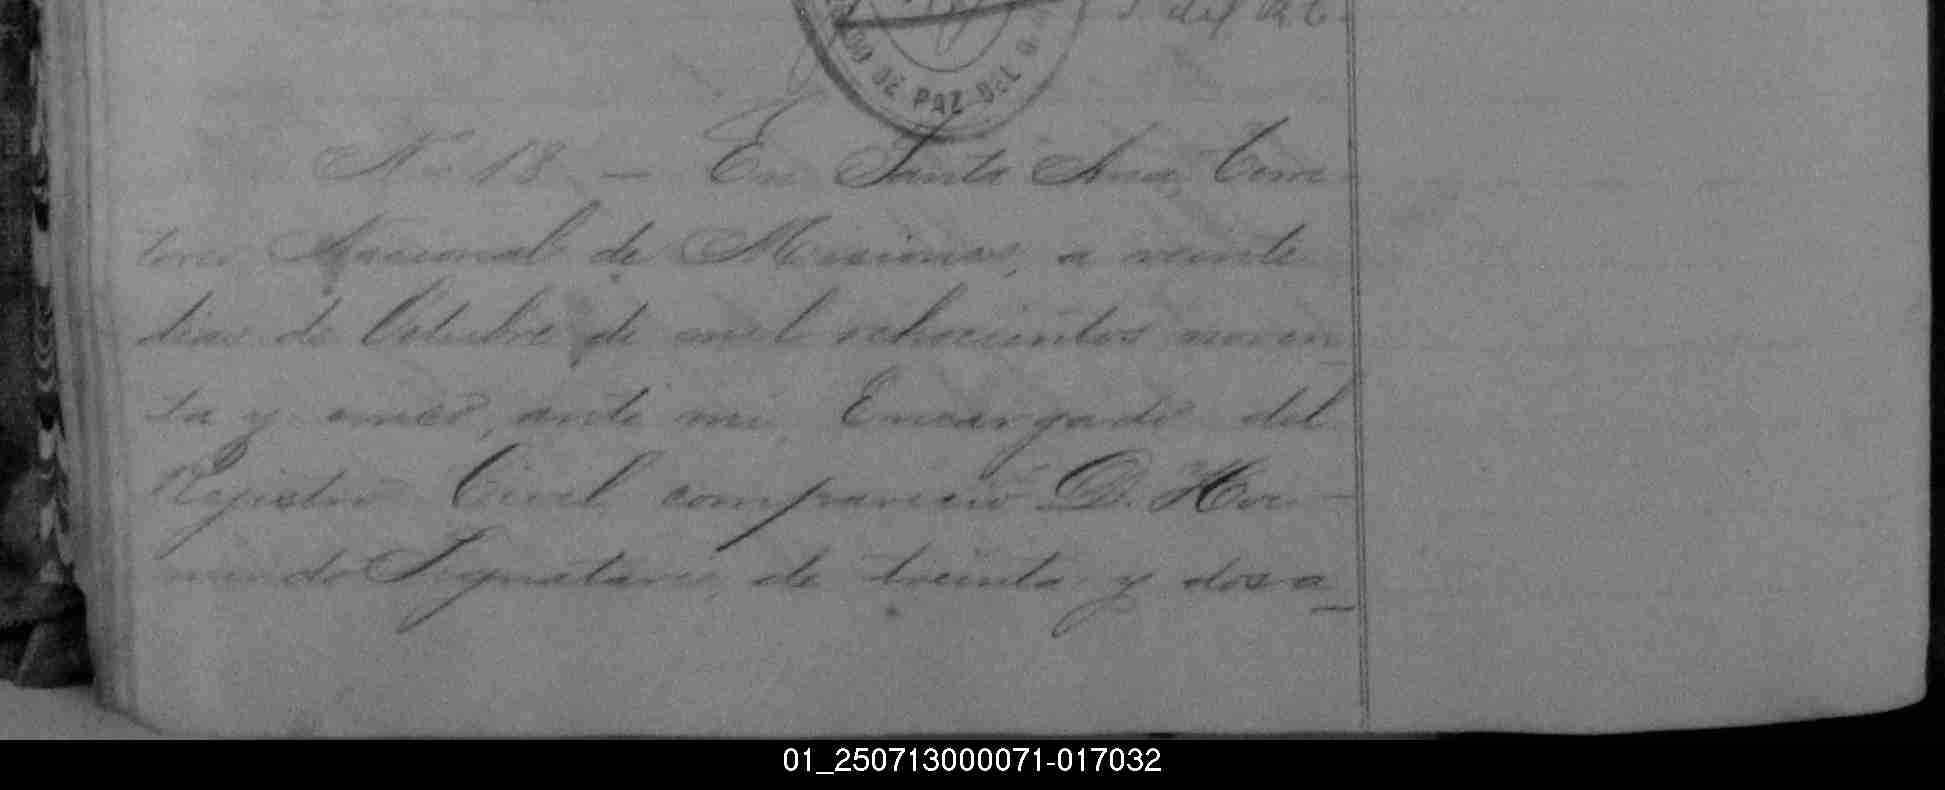 DE PAZ DEL
No 18 — En Santa Ana, Terri
torio Nacional de Misiones, a veinte
dias de Octubre de mil ochocientos noven
ta y cinco, ante mi, Encargado del
Registro Civil compareció D.
de treinta y dos a
01_250713000071-017032